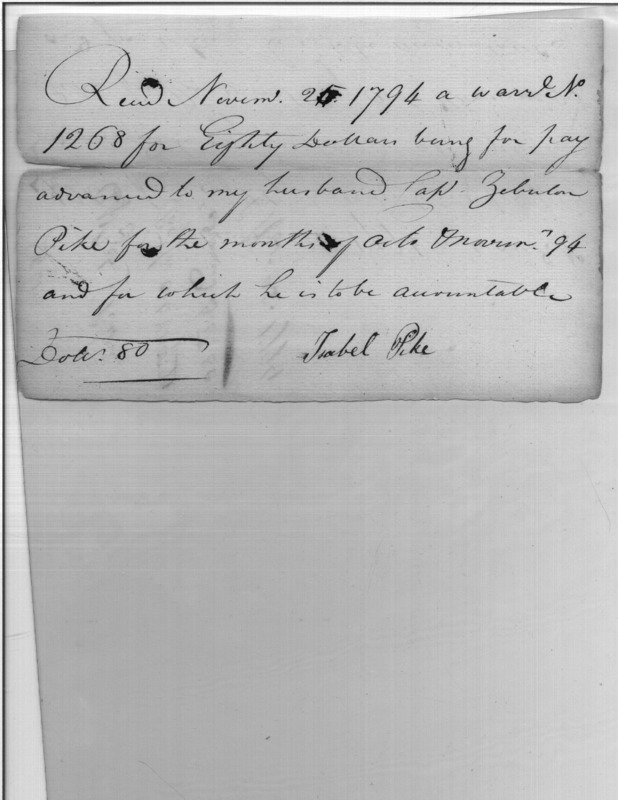 Recd Novemr. 25 1794 a warrt No.
1268 for Eighty Dollars being for pay
advanced to my husband Cap Zebulon
Pike for the months of Octo & Novemr. 94
and for which he is to be accountable
Dolls. 80 Isabel Pike